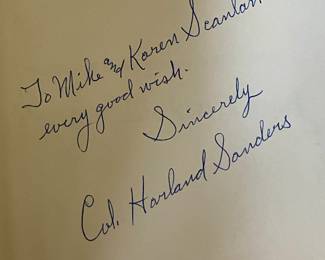 To Mike and Karen Scanlan
every good wish.
Sincerely
Col. Harland Sanders